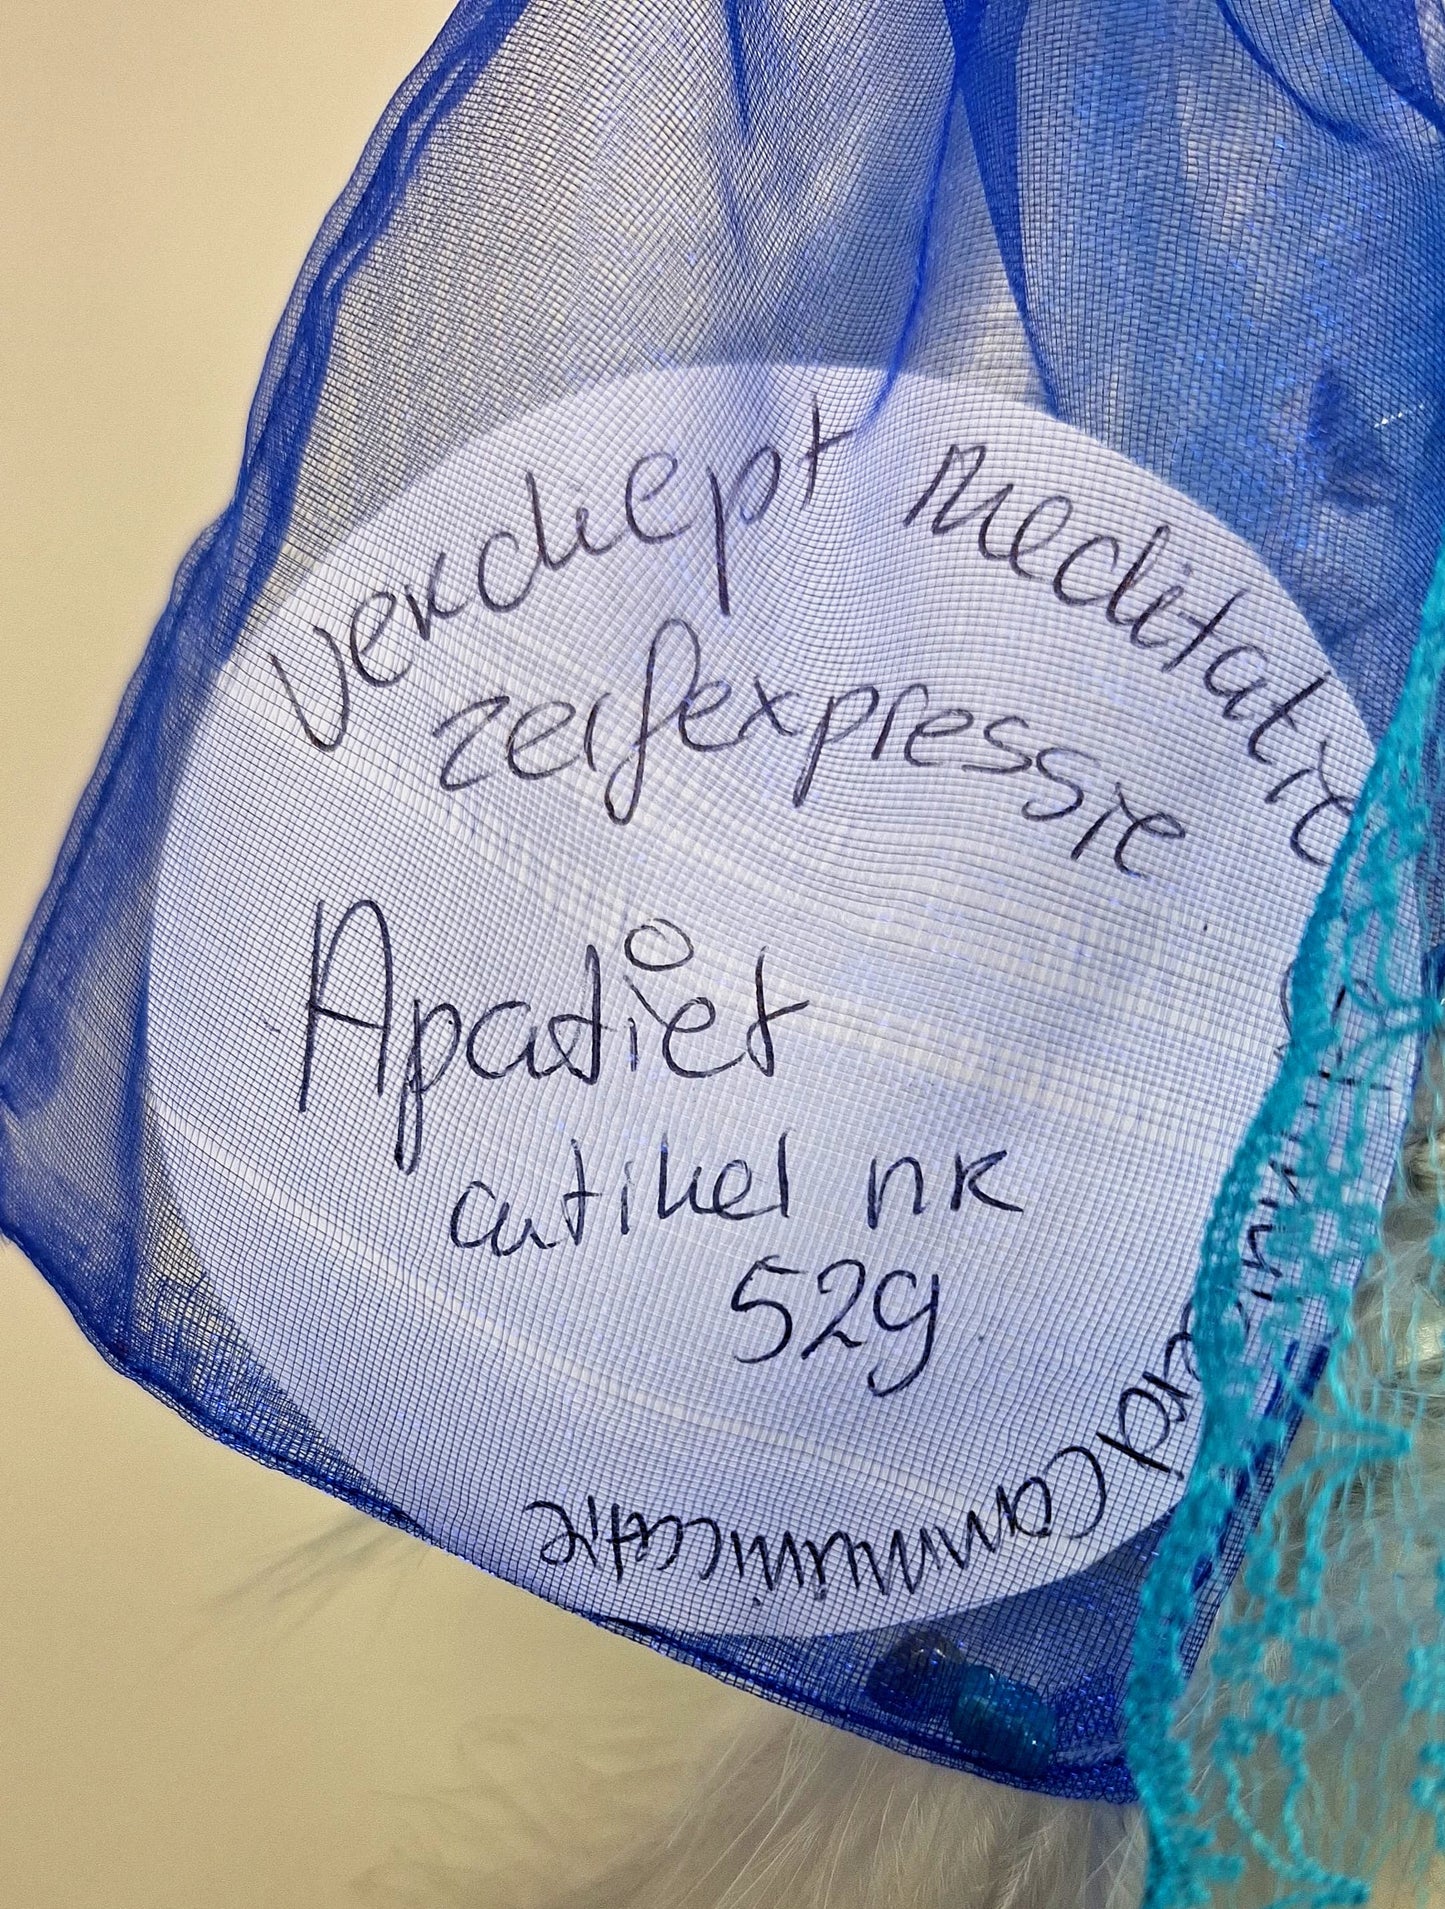 verdiept meditatie
zelfexpressie
Apatiet
artikel nr
529
communicatie